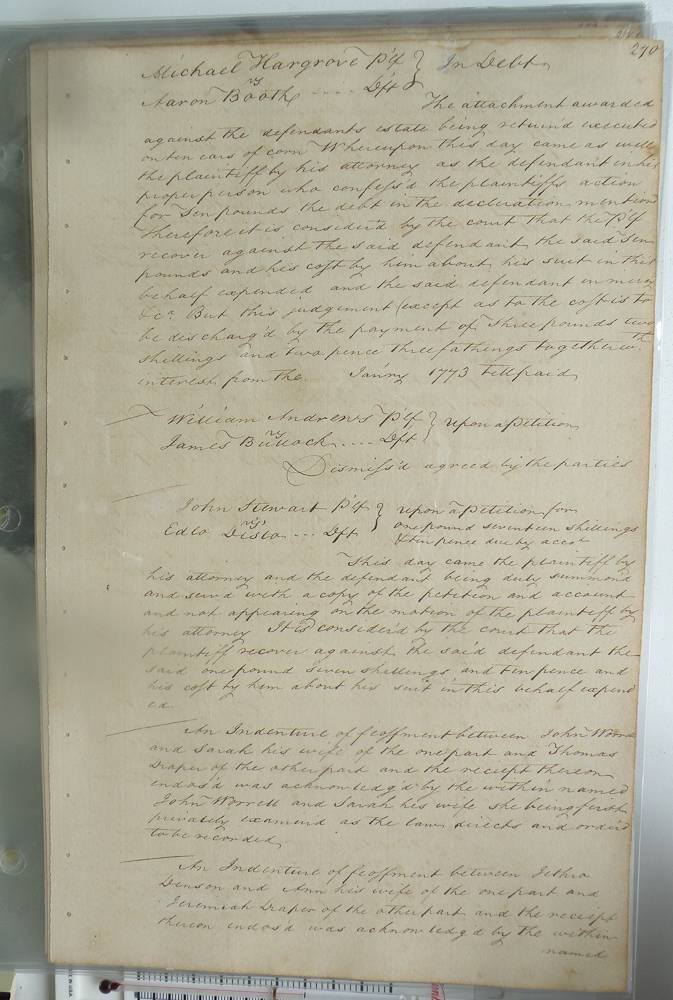 270
Michael Hargrove Pltf } In Debt
vs
Aaron Booth ..... Dft
The attachment awarded
against the defendants estate being return'd executed
on ten ears of corn Whereupon this day came as well
the plaintiff by his attorney as the defendant in his
proper person who confess'd the plaintiffs action
for Ten pounds the debt in the declaration mention
Therefore it is consider'd by the court that the Pltf
recover against the said defendant the said Ten
pounds and his cost by him about his suit in that
behalf expended and the said defendant in mercy
&c.a But this judgement (except as to the cost is to
be discharg'd by the payment of three pounds two
shillings and two pence three fathings together wth
interest from the Jan'ry 1773 till paid
William Andrews Pltf } upon a Petition
vs
James Bullock .... Dft
Dismiss'd agreed by the parties
John Stewart Pltf } upon a Petition for
vs one pound seventeen shillings
Edlo ... Dft & ten pence due by accot
This day came the plaintiff by
his attorney and the defendant being duly summon'd
and serv'd with a copy of the petition and account
and not appearing on the motion of the plaintiff by
his attorney It is consider'd by the court that the
plaintiff recover against the said defendant the
said one pound seven shillings and ten pence and
his cost by him about his suit in this behalf expend
ed
An Indenture of feoffment between John Worrell
and Sarah his wife of the one part and Thomas
Draper of the other part and the reciept thereon
endos'd was acknowledg'd by the within named
John Worrell and Sarah his wife she being first
privately examin'd as the law directs and ord'rd
to be recorded
An Indenture of feoffment between Jethro
Denson and Ann his wife of the one part and
Jeremiah Draper of the other part and the reciept
thereon endos'd was acknowledg'd by the within
named